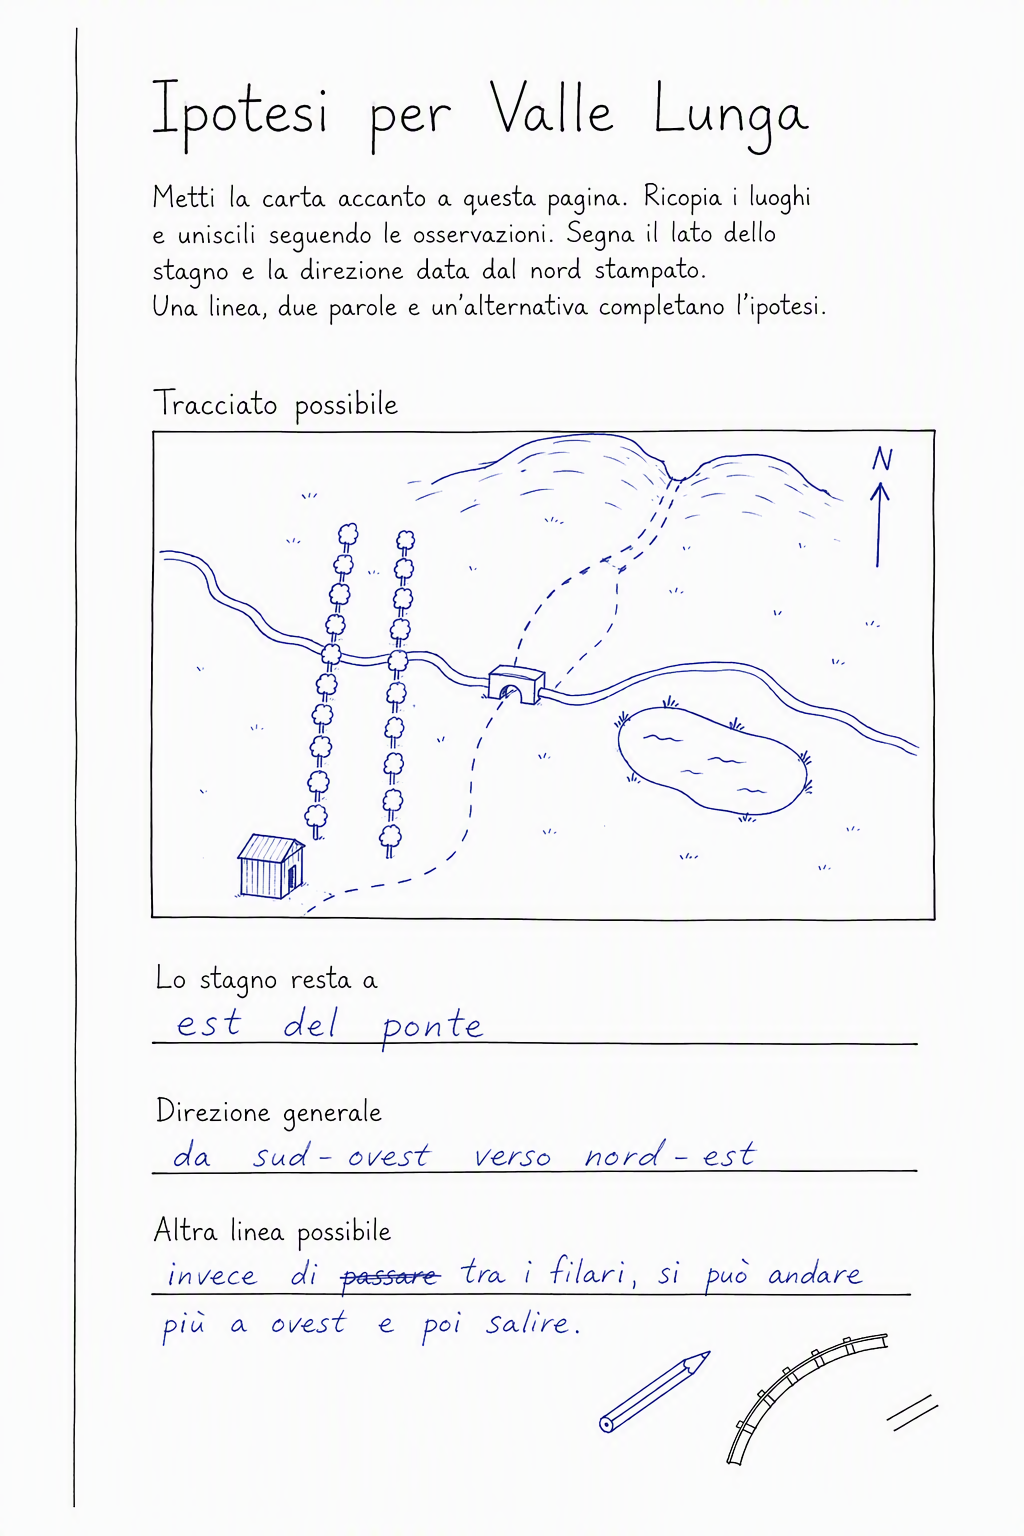 Ipotesi per Valle Lunga
Metti la carta accanto a questa pagina. Ricopia i luoghi
e uniscili seguendo le osservazioni. Segna il lato dello
stagno e la direzione data dal nord stampato.
Una linea, due parole e un'alternativa completano l'ipotesi.
Tracciato possibile
N
Lo stagno resta a
est del ponte
Direzione generale
da sud-ovest verso nord-est
Altra linea possibile
invece di passare tra i filari, si può andare
più a ovest e poi salire.